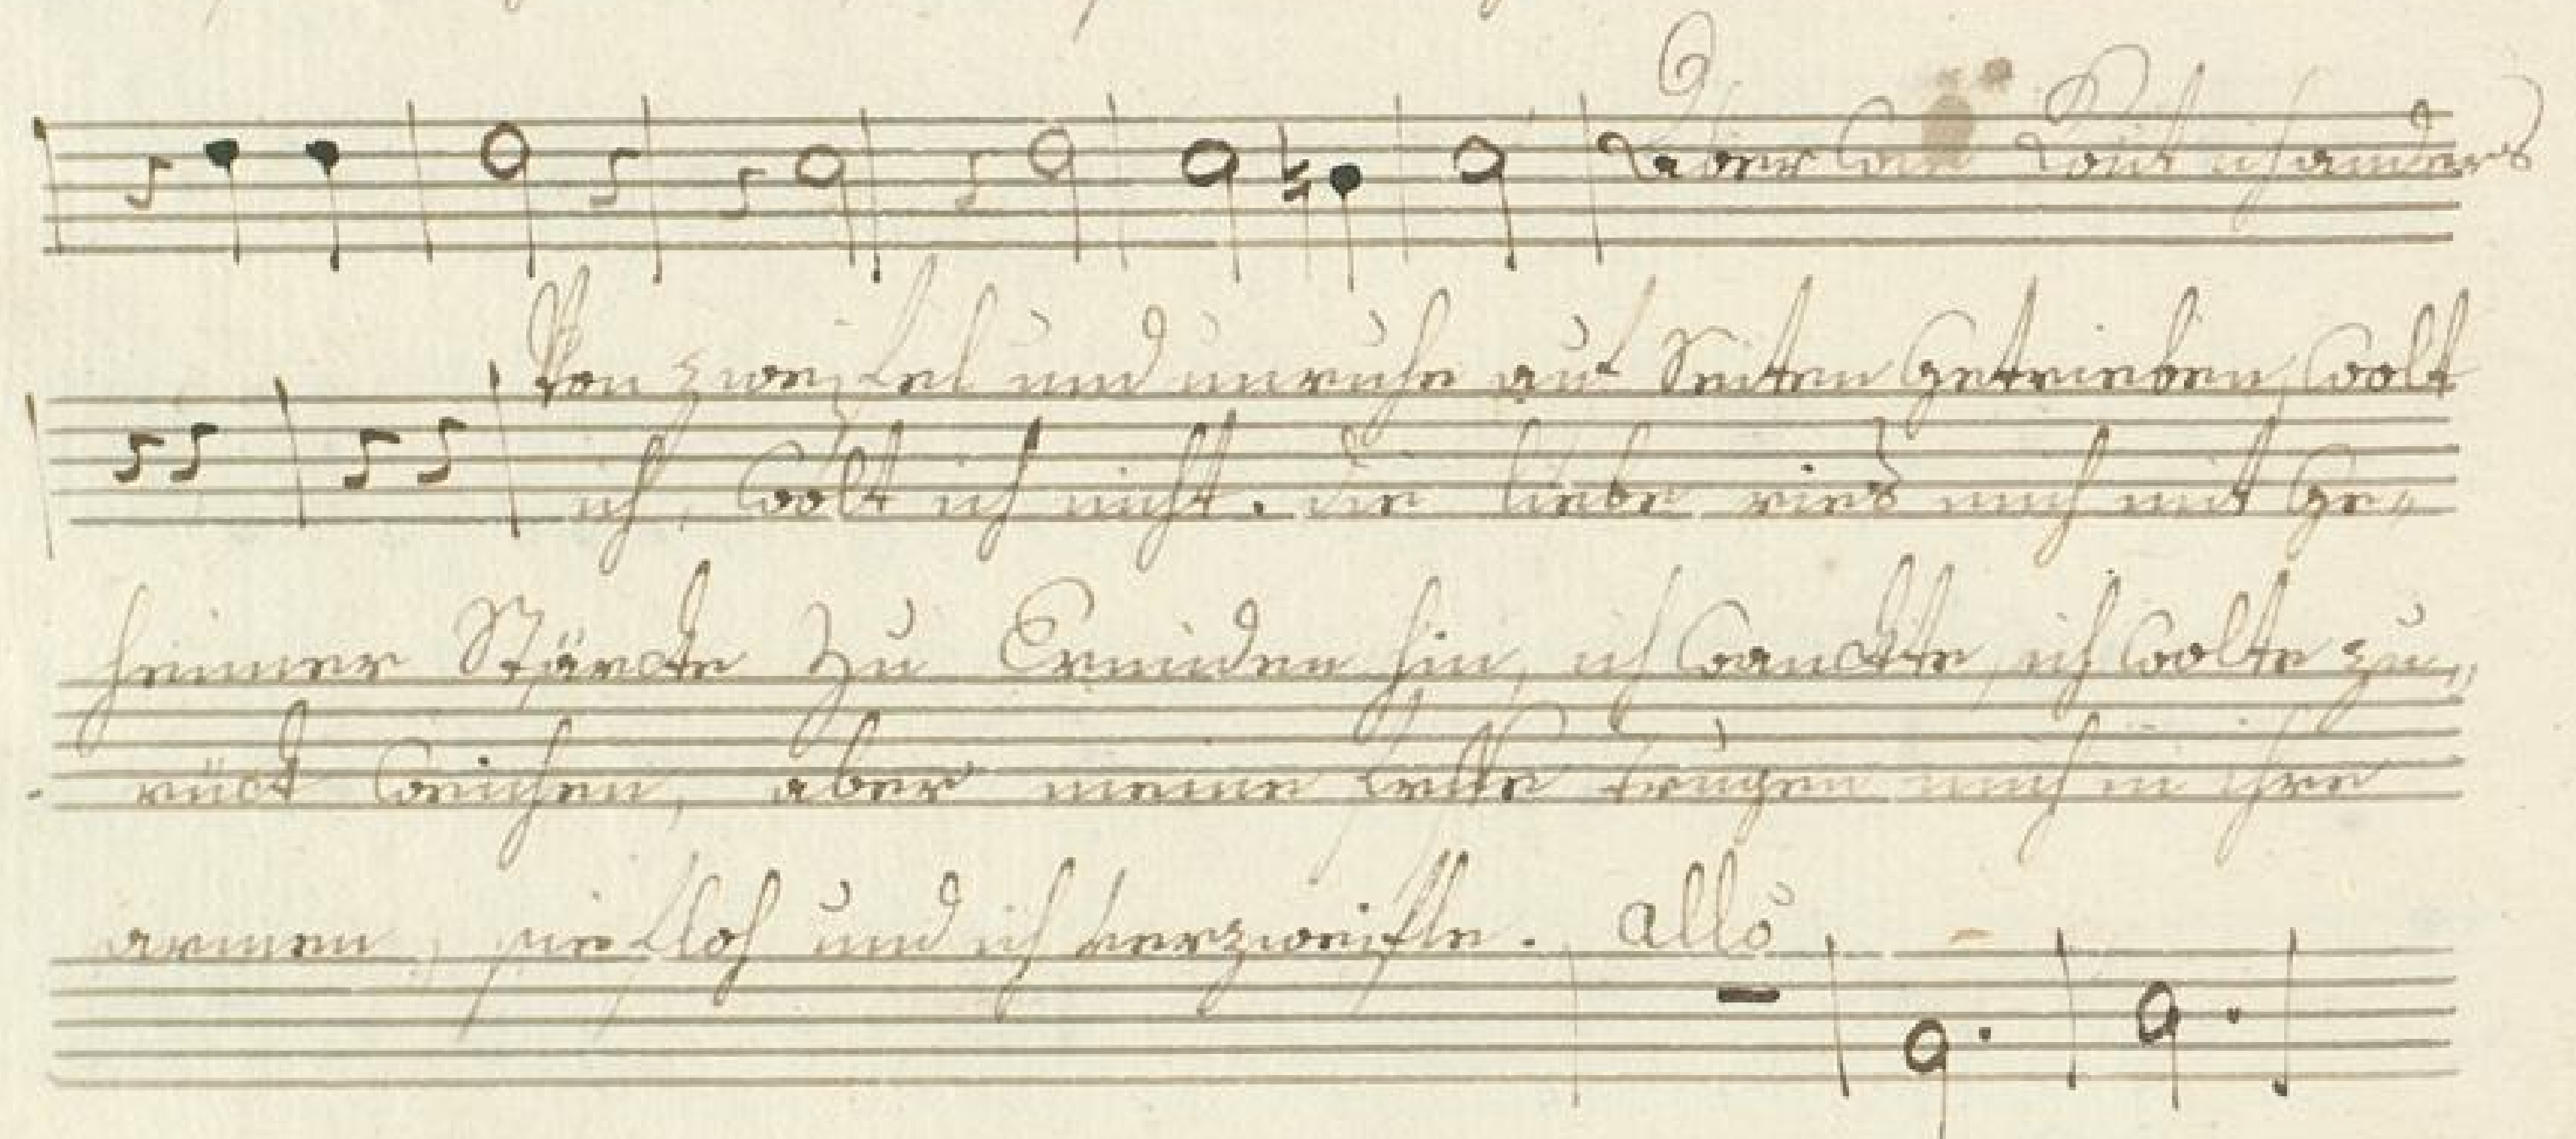 Aber wie konnt ich anders
Von zweifel und unruhe auf Seitten getrieben, wolt
ich, wolt ich nicht. die liebe ries mich mit Ge„
heimer Stärcke zu Cruiden hin, ich wanckte, ich wolte zu„
rück weichen, aber meine trugen mich in ihre
armen, sie floh und ich verzweifle.
allo